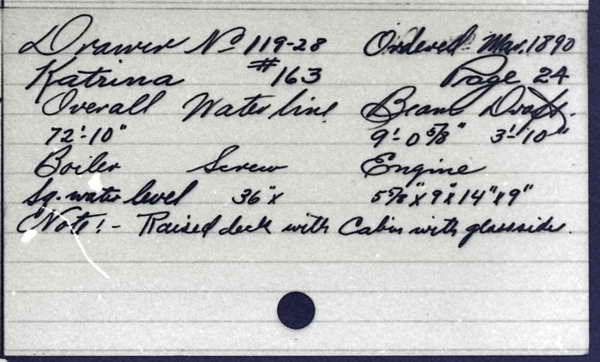 Drawer No 119-28 Ordered Mar. 1890
Katrina #163 Page 24
Overall Water line Beam Draft.
72'-10" 9'-0 5/8" 3'-10"
Boiler Screw Engine
Sq. water level 36"x 5 7/8"x9"x14"x9"
Note:- Raised deck with Cabin with glasssides.